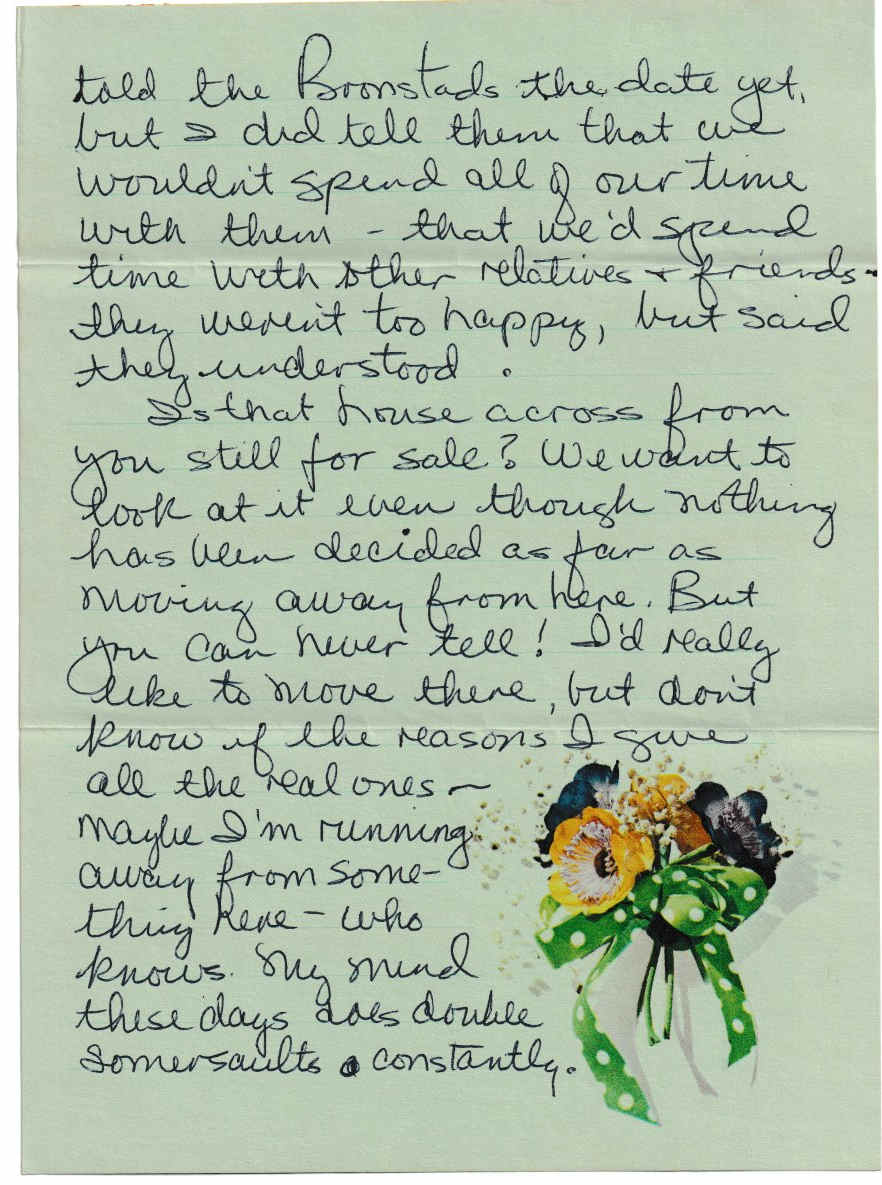 told the Bronstads the date yet,
but I did tell them that we
wouldn't spend all of our time
with them - that we'd spend
time with other relatives + friends -
they weren't too happy, but said
they understood.
Is that house across from
you still for sale? We want to
look at it even though nothing
has been decided as far as
moving away from here. But
you can never tell! I'd really
like to move there, but don't
know if the reasons I give
all the real ones ~
Maybe I'm running
away from some-
thing here - who
knows. My mind
these days does double
somersaults constantly.